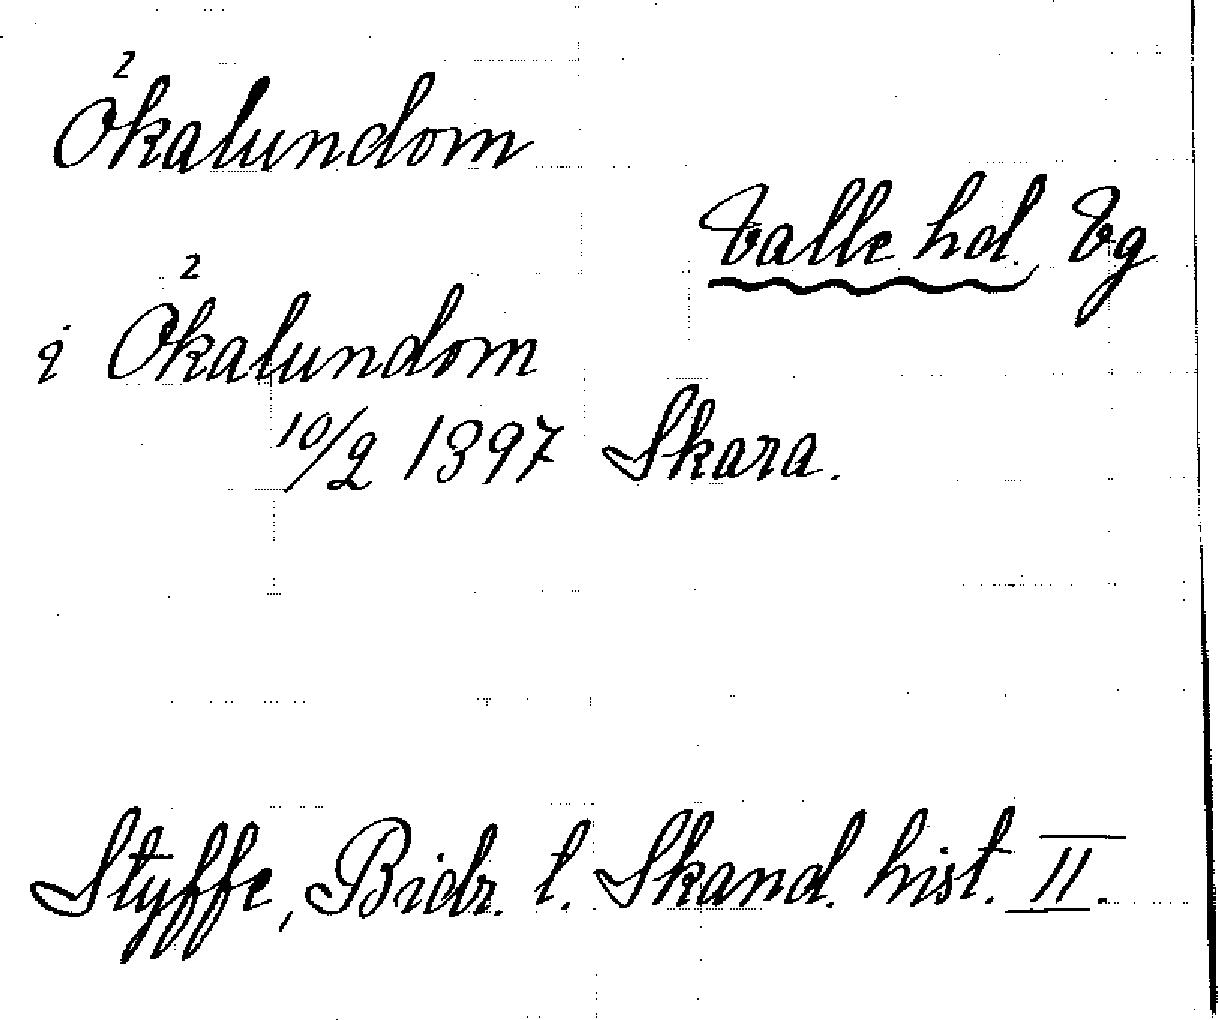 Ökalundom
Valle hd. Vg
i Ökalundom
10/2 1397 Skara.
Styffe, Bidr. t. Skand. hist. II.